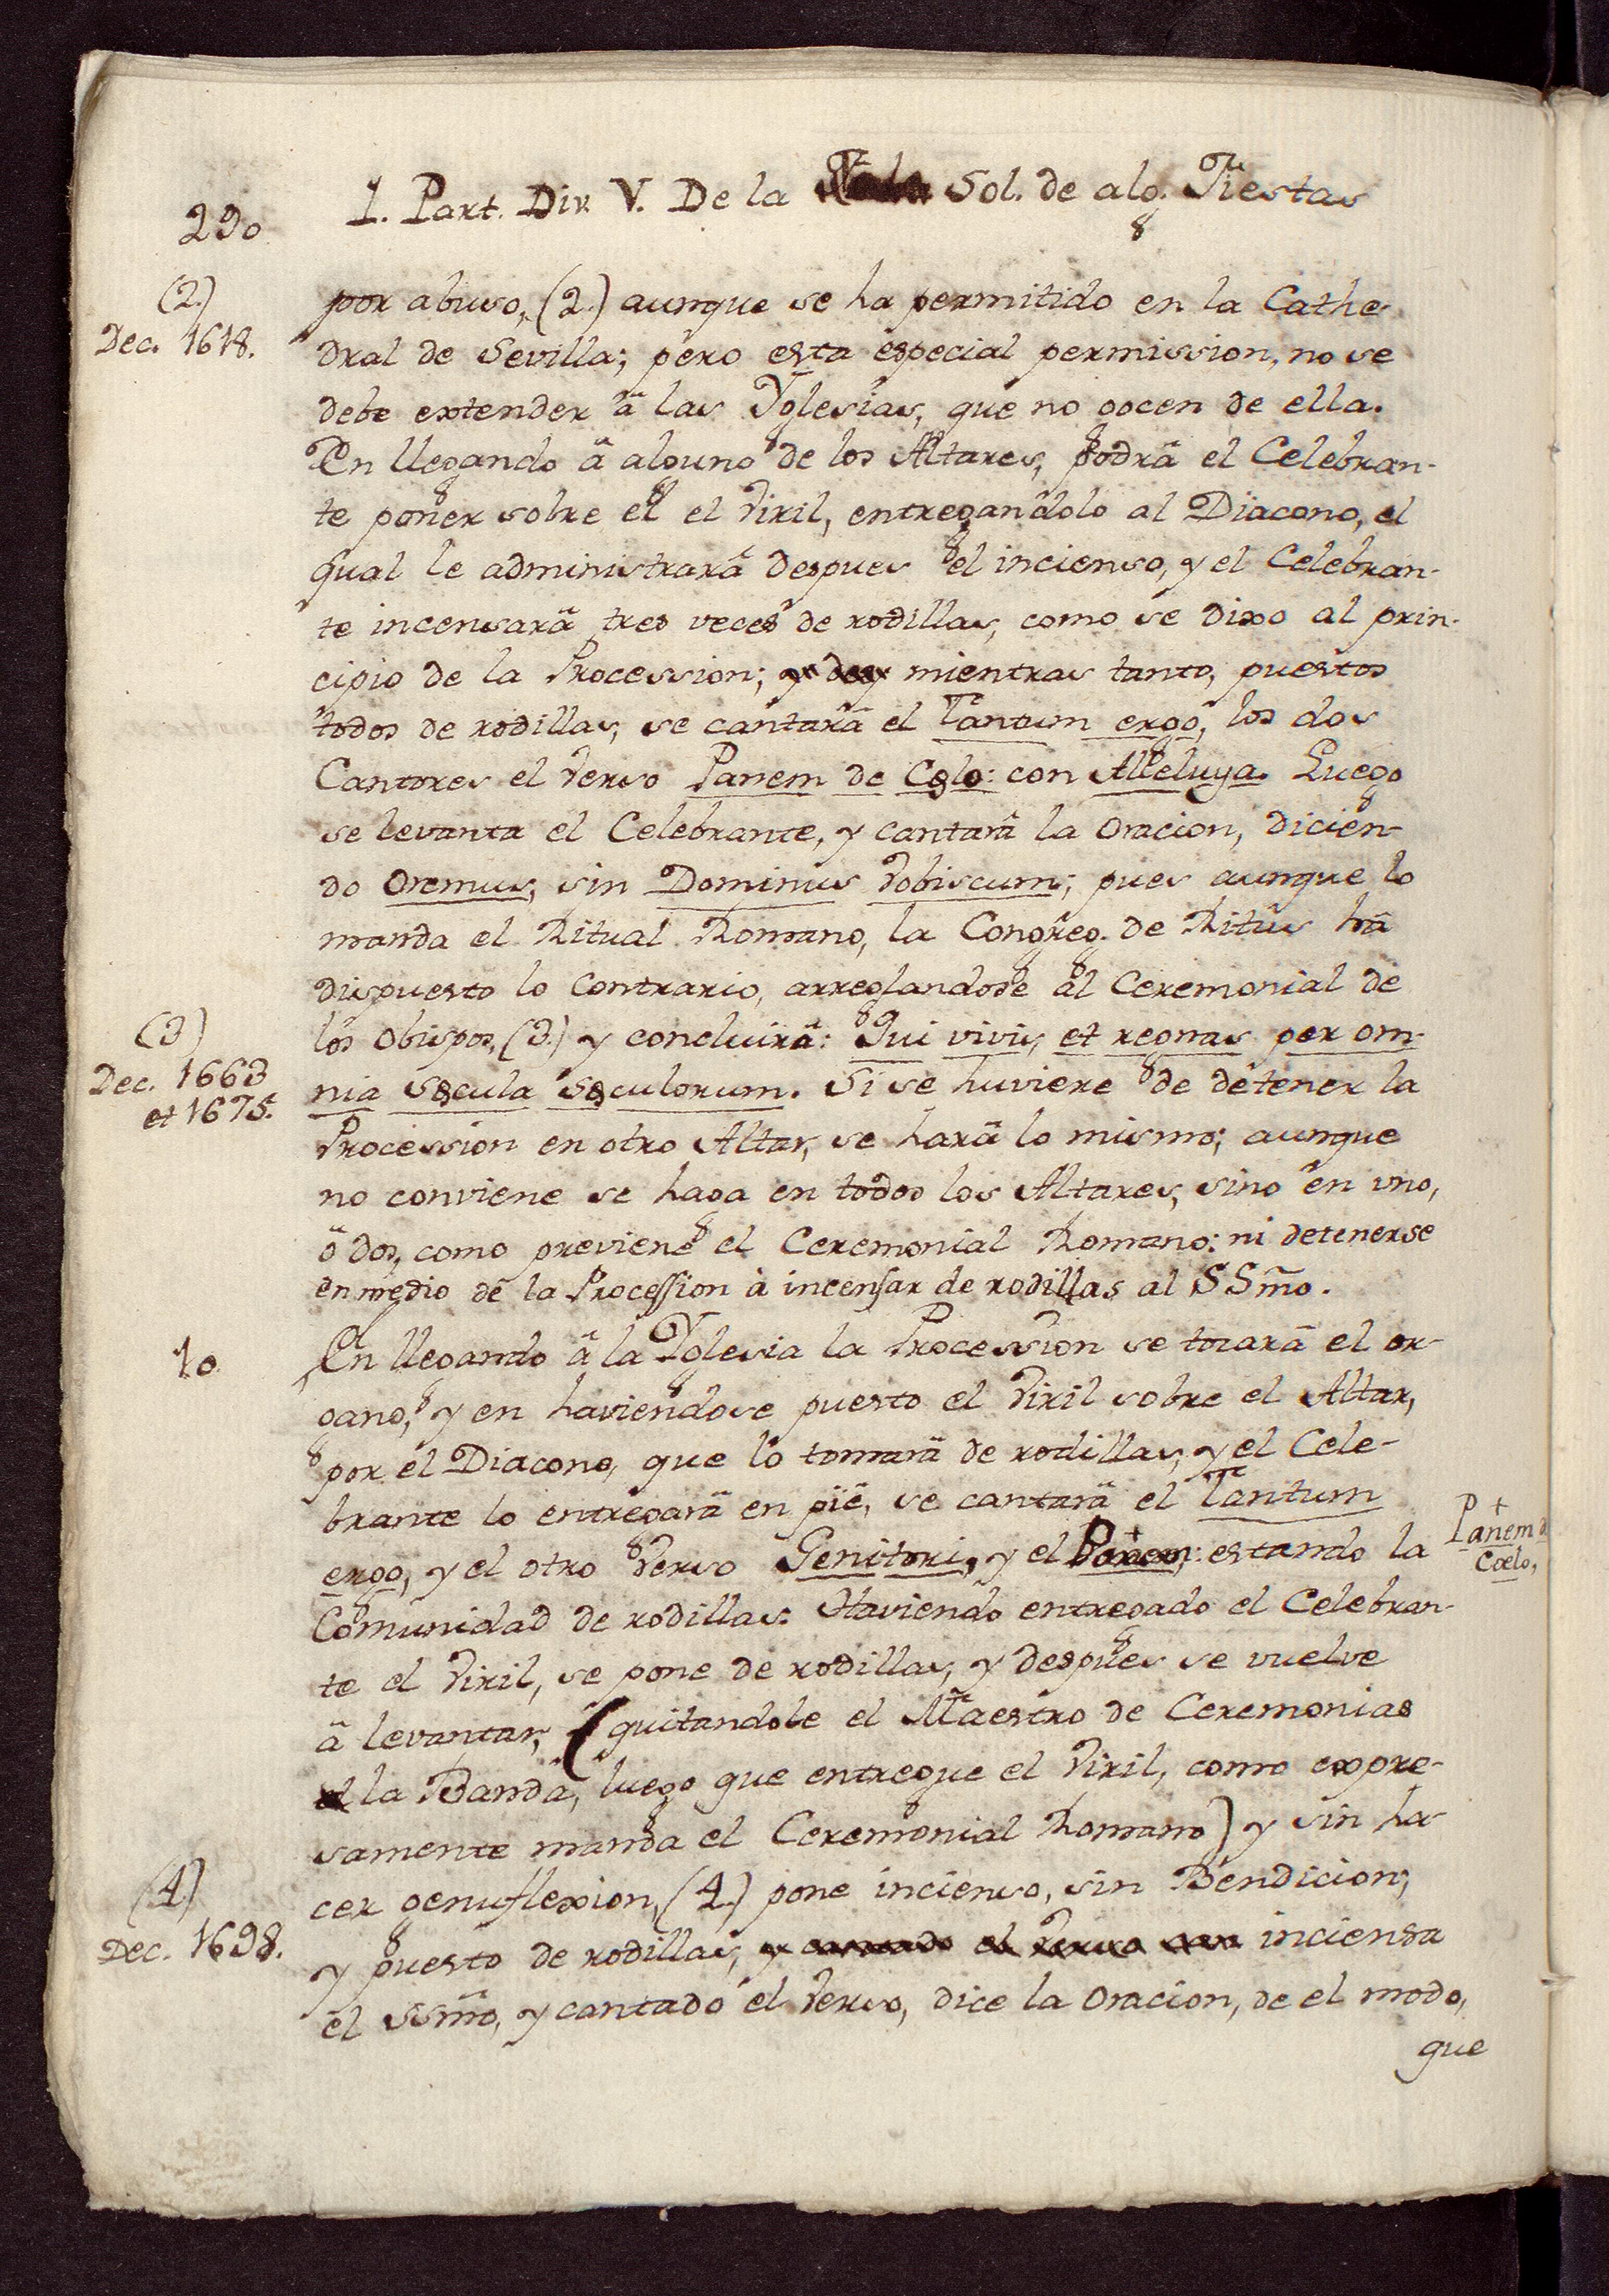 290
I. Part. Div. V. De la Sol. de alg. Fiestas
(2.)
Dec. 1618.
por abuso, (2.) aunque se ha permitido en la Cathe-
dral de Sevilla; pero esta especial permission, no se
debe extender â las Yglesias, que no gocen de ella.
En llegando â alguno de los Altares, podrâ el Celebran-
te poner sobre el el Viril, entregandolo al Diacono, el
qual le administrarâ despues el incienso, y el Celebran-
te incensarâ tres veces de rodillas, como se dixo al prin-
cipio de la Procession; mientras tanto, puestos
todos de rodillas, se cantarâ el Tantum ergo, los dos
Cantores el Verso Panem de Cęlo: con Alleluya. Luego
se levanta el Celebrante, y cantarâ la Oracion, dicien-
do Oremus, sin Dominus Vobiscum; pues aunque lo
manda el Ritual Romano, la Congreg. de Ritus hâ
dispuesto lo contrario, arreglandose al Ceremonial de
(3)
Dec. 1663
et 1675.
los Obispos, (3.) y concluirâ: Qui vivis, et regnas per om-
nia sęcula sęculorum. Si se huviere de detener la
Procession en otro Altar, se harâ lo mismo; aunque
no conviene se haga en todos los Altares, sino en vno,
ô dos, como previene el Ceremonial Romano: ni detenerse
en medio de la Procession à incensar de rodillas al SSm̃o.
10
En llegando â la Yglesia la Procession se tocarâ el or-
gano, y en haviendose puesto el Viril sobre el Altar,
por el Diacono, que lo tomarâ de rodillas, y el Cele-
brante lo entregarâ en piê, se cantarâ el Tantum
ergo, y el otro Verso Genitori, y el Panem +: estando la
+
Panem de
Cœlo,
Comunidad de rodillas. Haviendo entregado el Celebran-
te el Viril, se pone de rodillas, y despues se vuelve
â levantar, (quitandole el Maestro de Ceremonias
la Banda, luego que entregue el Viril, como expre-
samente manda el Ceremonial Romano) y sin ha-
(4)
Dec. 1698.
cer genuflexion, (4.) pone incienso, sin Bendicion;
y puesto de rodillas, y cantado el Verso inciensa
el SSm̃o, y cantado el Verso, dice la Oracion, de el modo,
que